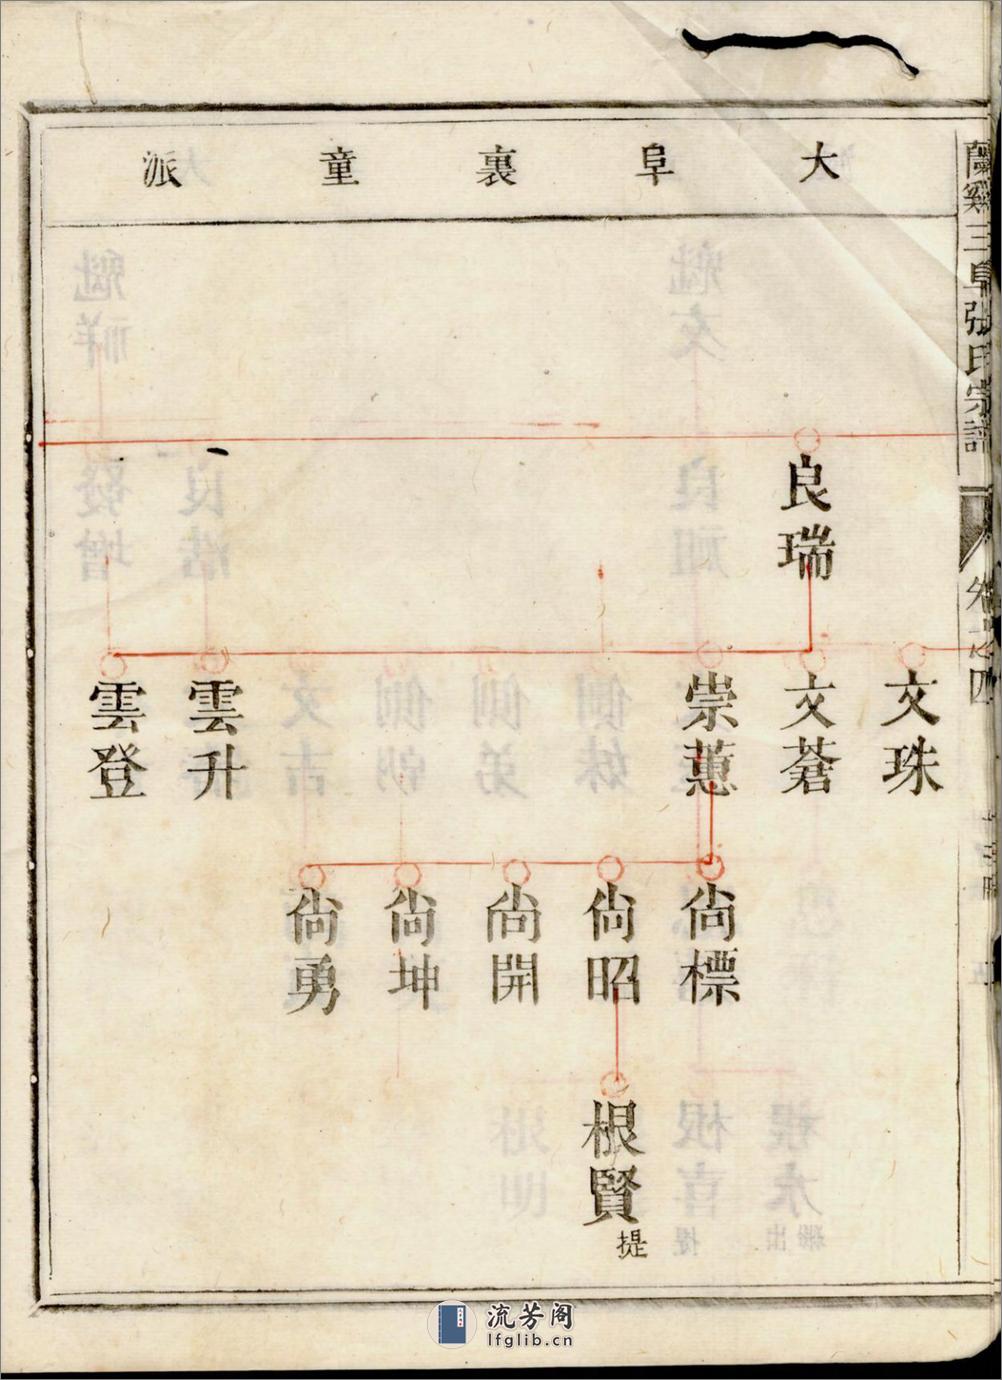 大阜裏童派
蘭谿三阜張氏宗譜
良瑞
文珠
文蒼
崇蕙
雲升
雲登
尙標
尙昭
尙開
尙坤
尙勇
根賢
提
流芳阁
lfglib.cn